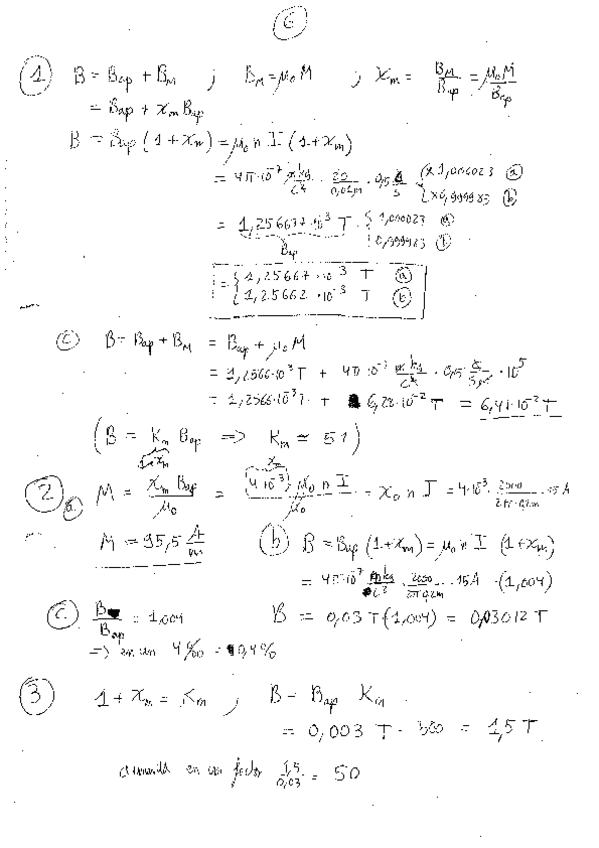 6
1 B = Bap + BM ; BM = μ₀ M ; χm = BM/Bap = μ₀M/Bap
= Bap + χm Bap
B = Bap (1 + χm) = μ₀ n I (1 + χm)
= 4π·10⁻⁷ m kg/C² · 20/0,01m · 0,5 C/s { ×1,000023 a
×0,999983 b
= 1,256637·10⁻³ T · { 1,000023 a
0,999983 b
Bap
= { 1,25667·10⁻³ T a
1,25662·10⁻³ T b
c B = Bap + BM = Bap + μ₀ M
= 1,2566·10⁻³ T + 4π·10⁻⁷ m kg/C² · 0,5 · 10⁵
= 1,2566·10⁻³ T + 6,28·10⁻² T = 6,41·10⁻² T
(B = Km Bap => Km ≃ 51)
1+χm
2 a. M = χm Bap/μ₀ = 4·10⁻³ μ₀ n I/μ₀ = χ₀ n I = 4·10⁻³ · 2000/2π·0,2m · 15 A
χm
M = 95,5 A/m b B = Bap (1+χm) = μ₀ n I (1+χm)
= 4π·10⁻⁷ m kg/C² · 2000/2π0,2m · 15A · (1,004)
c. B/Bap = 1,004 B = 0,03 T(1,004) = 0,03012 T
=> en un 4‰ = 0,4%
3 1 + χm = Km ; B = Bap Km
= 0,003 T · 500 = 1,5 T
aumenta en un factor 1,5/0,03 = 50